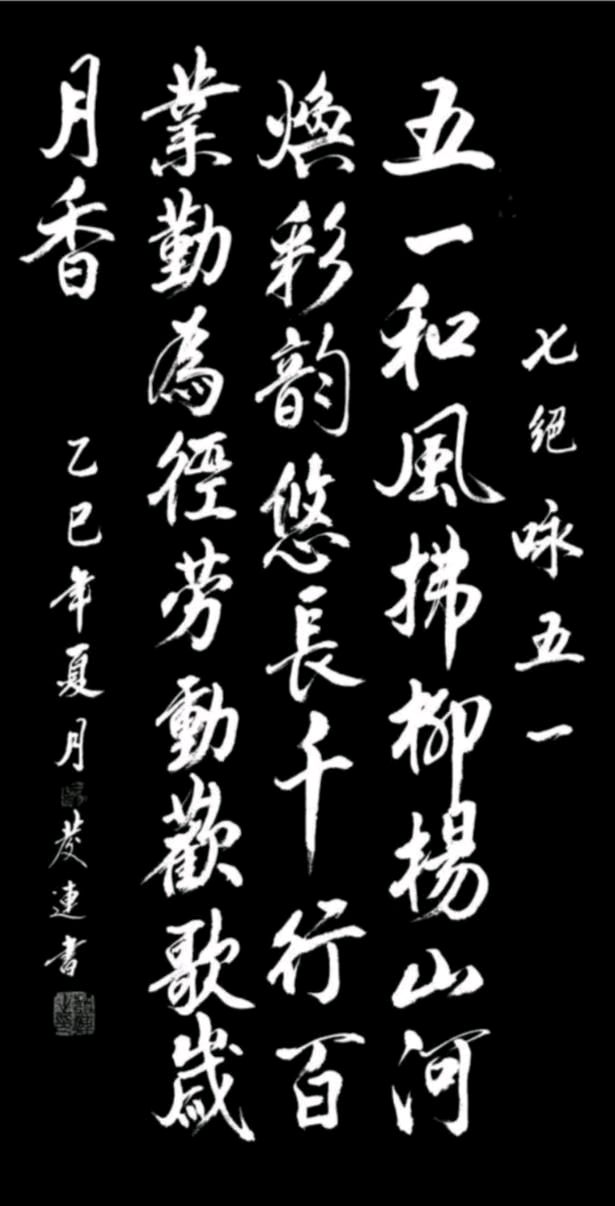 七絕 咏五一
五一和風拂柳揚山河
煥彩韵悠長千行百
業勤為徑勞動歡歌歲
月香
乙巳年夏月 菱連書